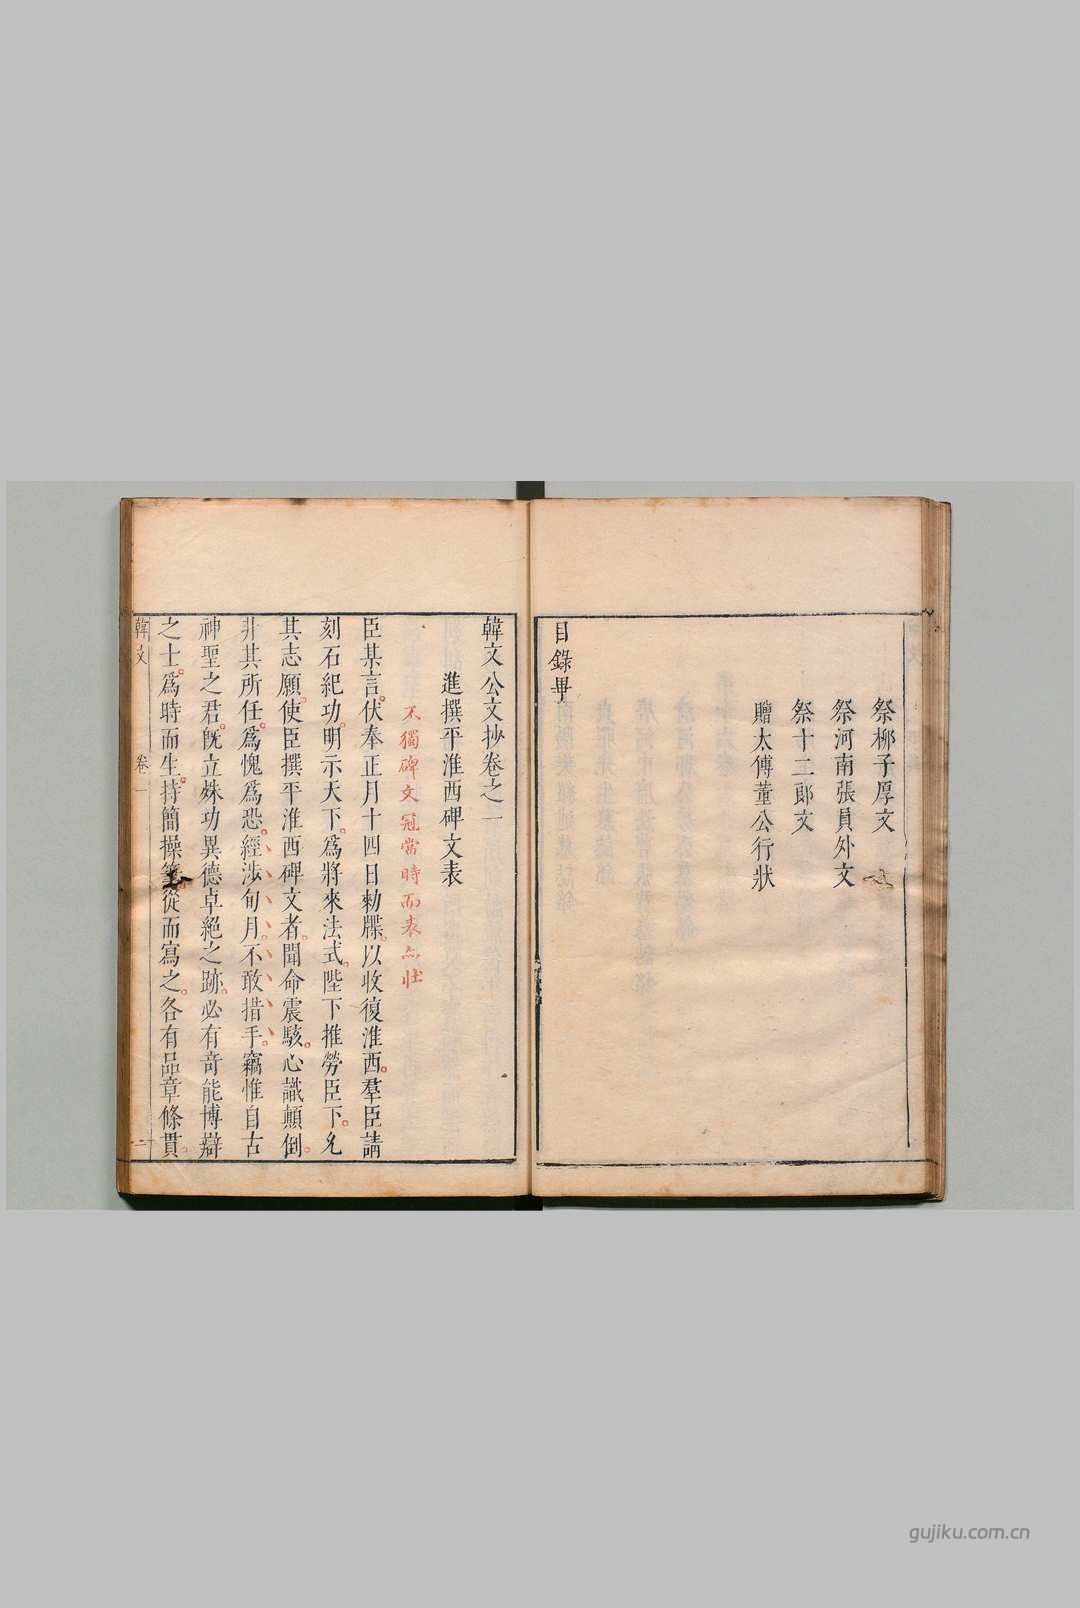 祭柳子厚文
祭河南張員外文
祭十二郎文
贈太傅董公行狀
目錄畢
韓文公文抄卷之一
進撰平淮西碑文表
不獨碑文冠當時而表亦壯
臣某言伏奉正月十四日勅牒以收復淮西羣臣請
刻石紀功明示天下爲將來法式陛下推勞臣下允
其志願使臣撰平淮西碑文者聞命震駭心識顛倒
非其所任爲愧爲恐經涉旬月不敢措手竊惟自古
神聖之君旣立殊功異德卓絕之跡必有奇能博辯
之士爲時而生持簡操筆從而寫之各有品章條貫
韓文
卷一
一
gujiku.com.cn